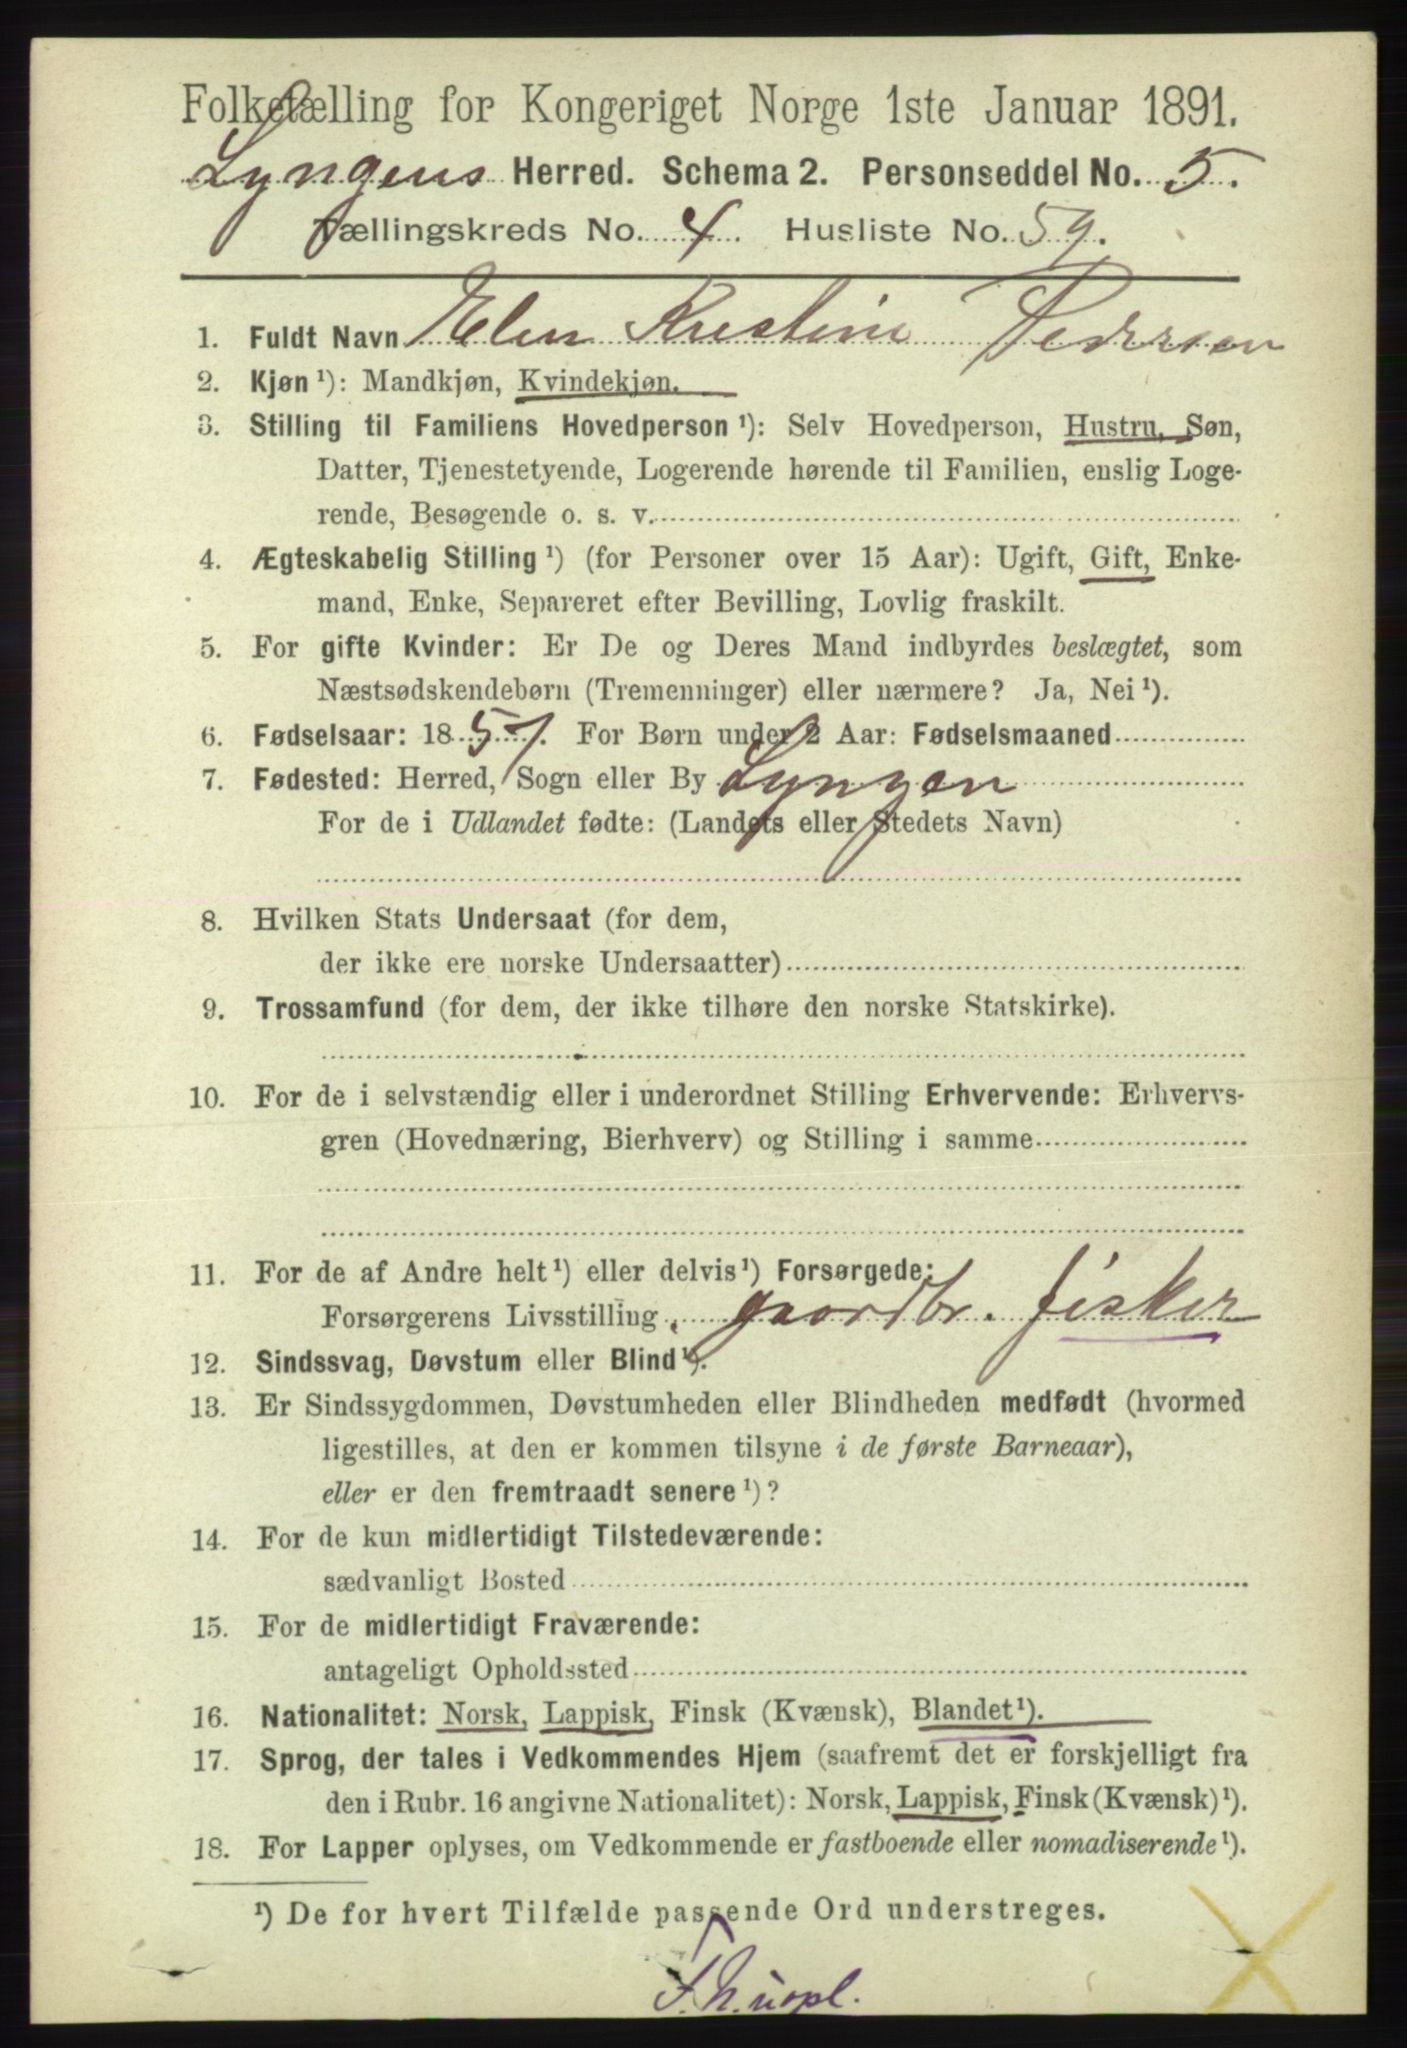 Folketælling for Kongeriget Norge 1ste Januar 1891.
Lyngens Herred. Schema 2. Personseddel No. 5.
Tællingskreds No. 4. Husliste No. 59.
1. Fuldt Navn Elen Kristine Pedersen
2. Kjøn ¹): Mandkjøn, Kvindekjøn.
3. Stilling til Familiens Hovedperson ¹): Selv Hovedperson, Hustru, Søn,
Datter, Tjenestetyende, Logerende hørende til Familien, enslig Loge-
rende, Besøgende o. s. v.
4. Ægteskabelig Stilling ¹) (for Personer over 15 Aar): Ugift, Gift, Enke-
mand, Enke, Separeret efter Bevilling, Lovlig fraskilt.
5. For gifte Kvinder: Er De og Deres Mand indbyrdes beslægtet, som
Næstsødskendebørn (Tremenninger) eller nærmere? Ja, Nei ¹).
6. Fødselsaar: 1857. For Børn under 2 Aar: Fødselsmaaned
7. Fødested: Herred, Sogn eller By Lyngen
For de i Udlandet fødte: (Landets eller Stedets Navn)
8. Hvilken Stats Undersaat (for dem,
der ikke ere norske Undersaatter)
9. Trossamfund (for dem, der ikke tilhøre den norske Statskirke).
10. For de i selvstændig eller i underordnet Stilling Erhvervende: Erhvervs-
gren (Hovednæring, Bierhverv) og Stilling i samme
11. For de af Andre helt ¹) eller delvis ¹) Forsørgede:
Forsørgerens Livsstilling, gaardbr. fisker
12. Sindssvag, Døvstum eller Blind ¹).
13. Er Sindssygdommen, Døvstumheden eller Blindheden medfødt (hvormed
ligestilles, at den er kommen tilsyne i de første Barneaar),
eller er den fremtraadt senere ¹)?
14. For de kun midlertidigt Tilstedeværende:
sædvanligt Bosted
15. For de midlertidigt Fraværende:
antageligt Opholdssted
16. Nationalitet: Norsk, Lappisk, Finsk (Kvænsk), Blandet ¹).
17. Sprog, der tales i Vedkommendes Hjem (saafremt det er forskjelligt fra
den i Rubr. 16 angivne Nationalitet): Norsk, Lappisk, Finsk (Kvænsk) ¹).
18. For Lapper oplyses, om Vedkommende er fastboende eller nomadiserende ¹).
¹) De for hvert Tilfælde passende Ord understreges.